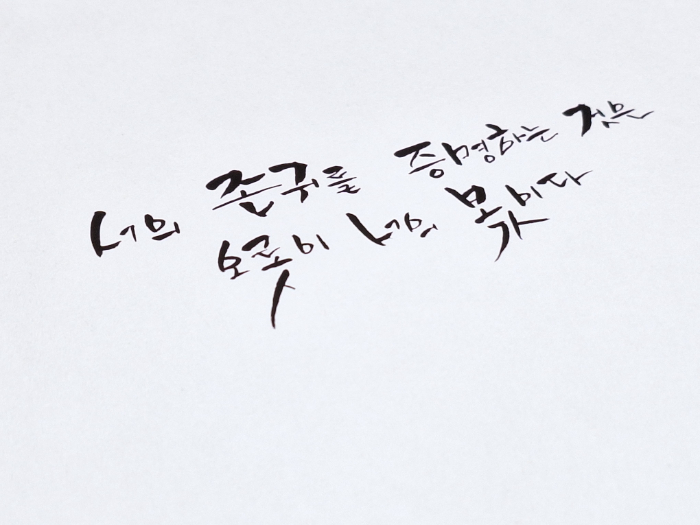 너의 존귀를 증명하는 것은
오롯이 너의 몫이다